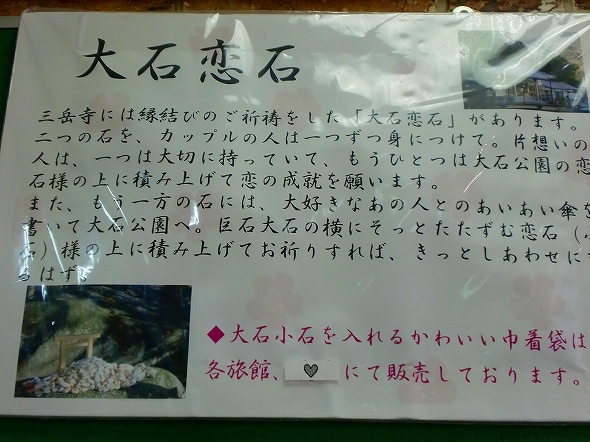 大石恋石
三岳寺には縁結びのご祈祷をした「大石恋石」があります。
二つの石を、カップルの人は一つずつ身につけて。片想いの
人は、一つは大切に持っていて、もうひとつは大石公園の恋
石様の上に積み上げて恋の成就を願います。
また、もう一方の石には、大好きなあの人とのあいあい傘を
書いて大石公園へ。巨石大石の横にそっとたたずむ恋石（
石）様の上に積み上げてお祈りすれば、きっとしあわせに
はず。
◆大石小石を入れるかわいい巾着袋は
各旅館、♥にて販売しております。